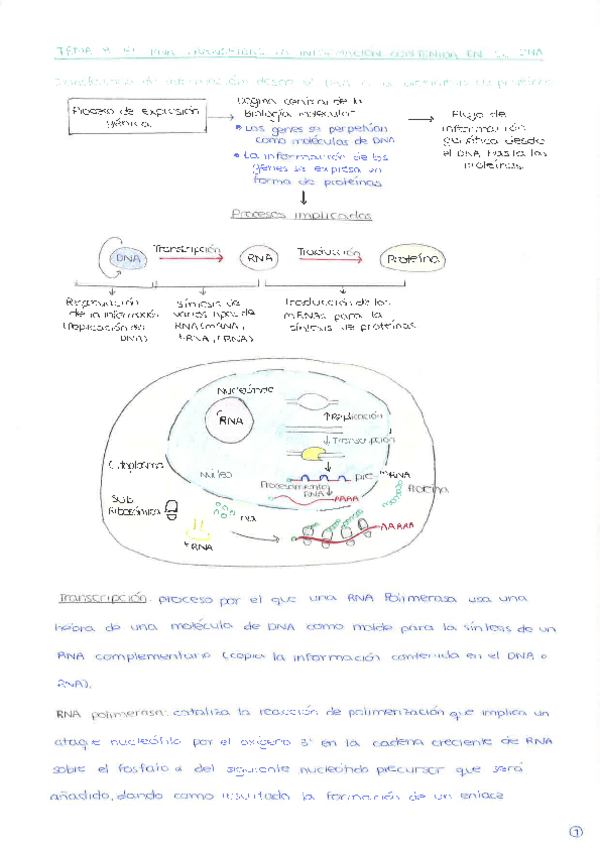 RNA TRANSFIERE LA INFORMACIÓN CONTENIDA EN EL DNA
Transferencia de información desde el DNA a la síntesis de proteínas
Proceso de expresión génica
Dogma central de la biología molecular
• Los genes se perpetúan como moléculas de DNA
• La información de los genes se expresa en forma de proteínas
Flujo de información genética desde el DNA hasta las proteínas
Procesos implicados
DNA
Transcripción
RNA
Traducción
Proteína
de la información (Replicación del DNA)
síntesis de varios tipos de RNA (mRNA, tRNA, rRNA)
traducción de los mRNAs para la síntesis de proteínas
Nucléolo
RNA
↑ Replicación
↓ Transcripción
Citoplasma
Núcleo
pre-mRNA
Procesamiento RNA
AAAA
Proteína
Sub. Ribosómica
tRNA
AAAAA
Transcripción: proceso por el que una RNA Polimerasa usa una
hebra de una molécula de DNA como molde para la síntesis de un
RNA complementario (copia la información contenida en el DNA a
RNA).
RNA polimerasa: cataliza la reacción de polimerización que implica un
ataque nucleófilo por el oxígeno 3' en la cadena creciente de RNA
sobre el fosfato α del siguiente nucleótido precursor que será
añadido, dando como resultado la formación de un enlace
1